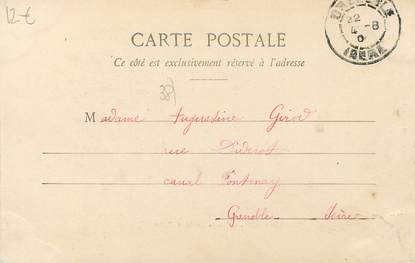 12-€
CARTE POSTALE
Ce côté est exclusivement réservé à l'adresse
38
Madame Augustine Girod
rue Diderot
canal Fontenay
Grenoble Isère
22
4 -8
0
ISERE